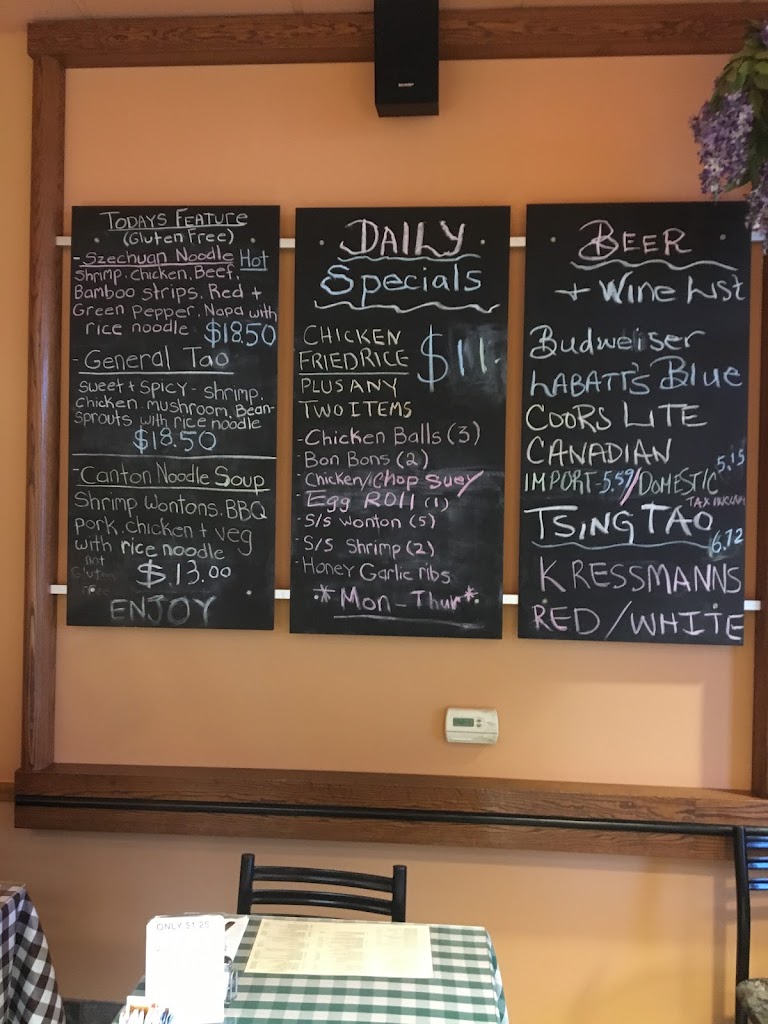 TODAYS FEATURE
(Gluten Free)
- Szechuan Noodle Hot
shrimp. chicken. Beef.
Bamboo strips. Red +
Green Pepper. Napa with
rice noodle $18.50
- General Tao
sweet + spicy - shrimp.
chicken. mushroom. Bean-
sprouts with rice noodle
$18.50
- Canton Noodle Soup
Shrimp wontons. BBQ
pork. chicken + veg
with rice noodle
not
Gluten
free
$13.00
ENJOY
DAILY
Specials
CHICKEN
FRIED RICE
$11.
PLUS ANY
TWO ITEMS
- Chicken Balls (3)
- Bon Bons (2)
- Chicken/Chop Suey
- Egg Roll (1)
- S/S Wonton (5)
- S/S Shrimp (2)
- Honey Garlic ribs
* Mon - Thur *
BEER
+ Wine List
Budweiser
LABATT'S Blue
COORS LITE
CANADIAN
IMPORT - 5.59 / DOMESTIC 5.15
TSING TAO
6.72
KRESSMANNS
RED / WHITE
ONLY $1.25